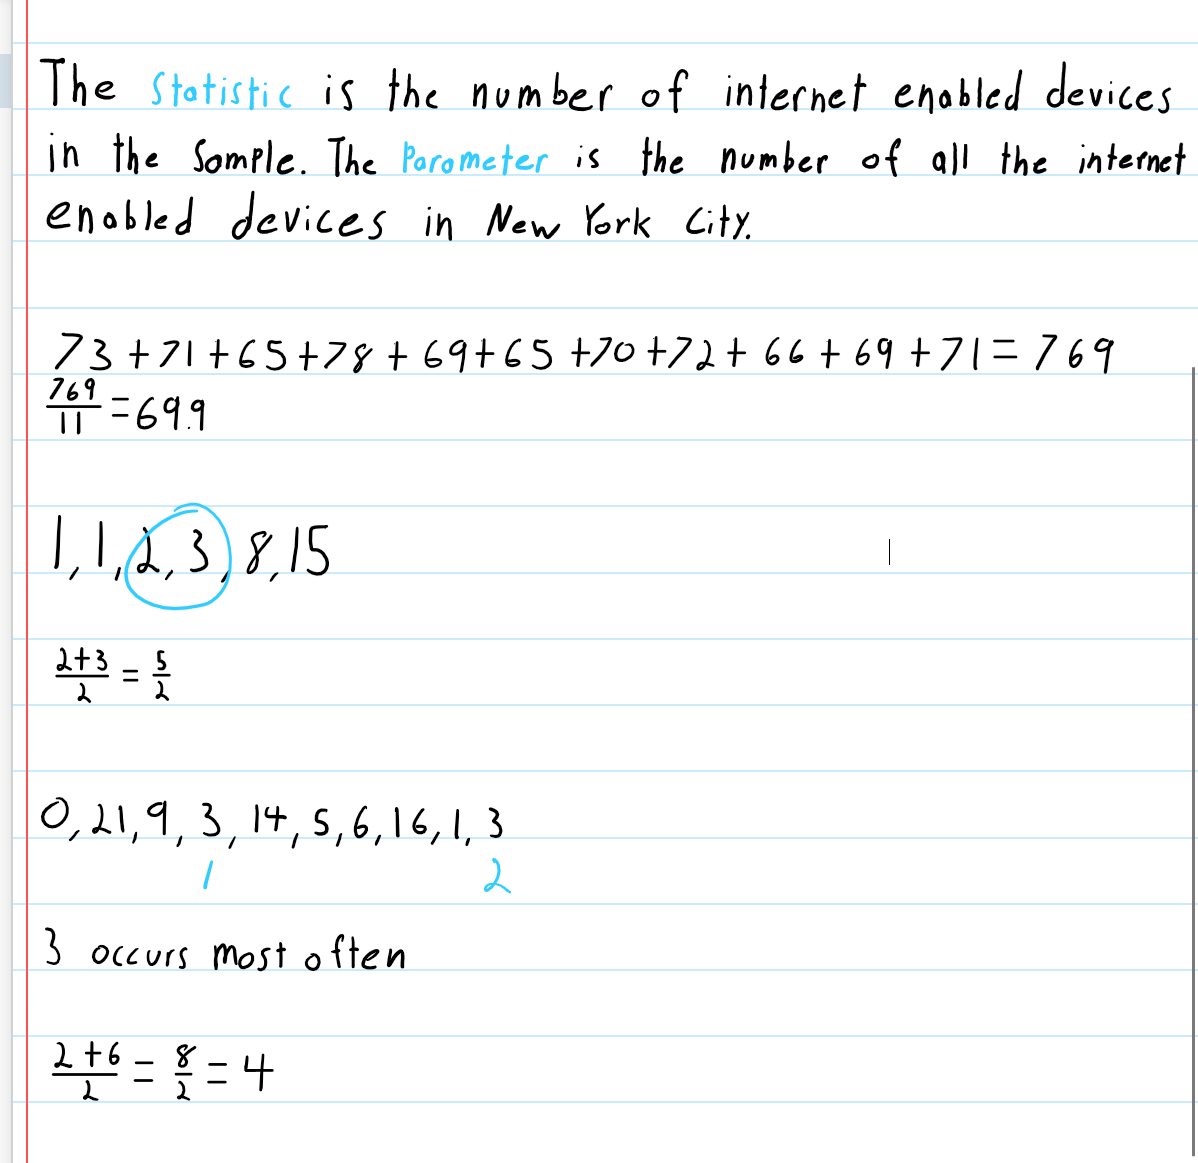 The Statistic is the number of internet enabled devices
in the Sample. The Parameter is the number of all the internet
enabled devices in New York City.
73 + 71 + 65 + 78 + 69 + 65 + 70 + 72 + 66 + 69 + 71 = 769
769/11 = 69.9
1, 1, 2, 3, 8, 15
2+3/2 = 5/2
0, 21, 9, 3, 14, 5, 6, 16, 1, 3
1 2
3 occurs most often
2+6/2 = 8/2 = 4